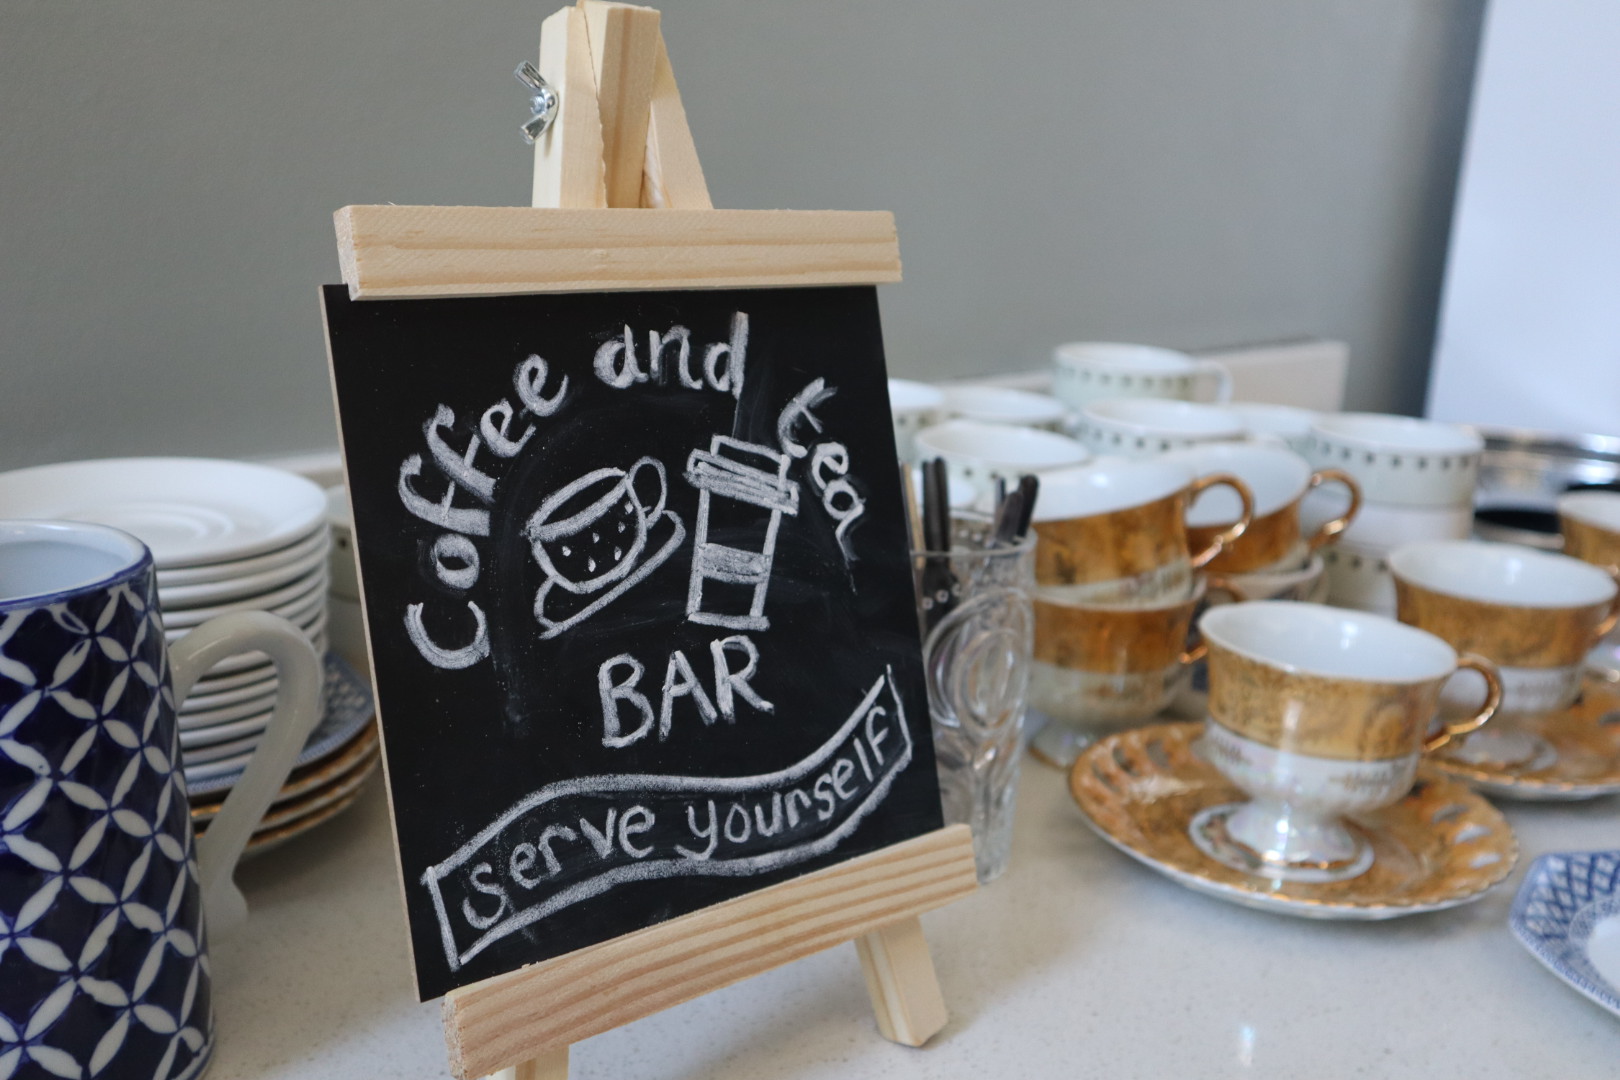 Coffee and tea
BAR
serve yourself